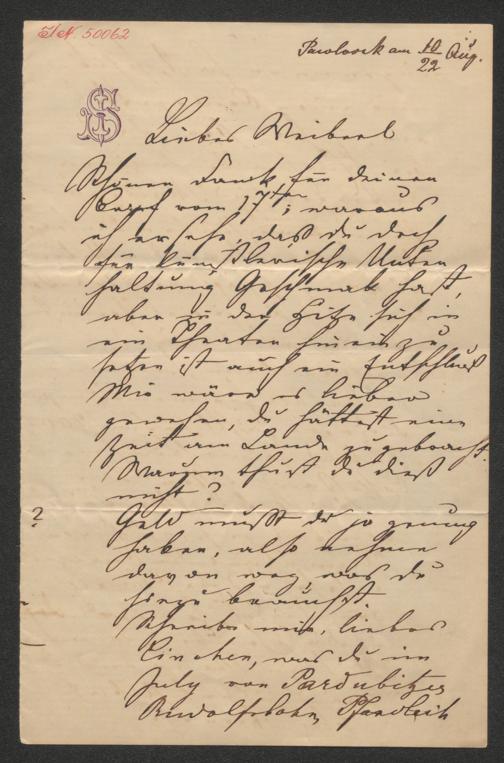 I/N. 50062
Pawlowsk am 10/22 Aug.
JS
Liebes Weiberl
Schönen Dank für deinen
Brief vom 17ten; woraus
ich ersehe, daß du doch
für künstlerische Unter
haltung Geschmak hast,
aber in der Hitze sich in
ein Theater hineinzu
setzen ist auch ein Entschluß
Mir wäre es lieber
gewesen, du hättest eine
Zeit am Lande zugebracht.
Warum thust du dieß
nicht?
?
Geld mußt du ja genung
haben, also nehme
davon weg, was du
hiezu brauchst.
Schreibe mir, liebes
was du im
July von Pardubitzer
Rudolfsbahn, Pfandleih